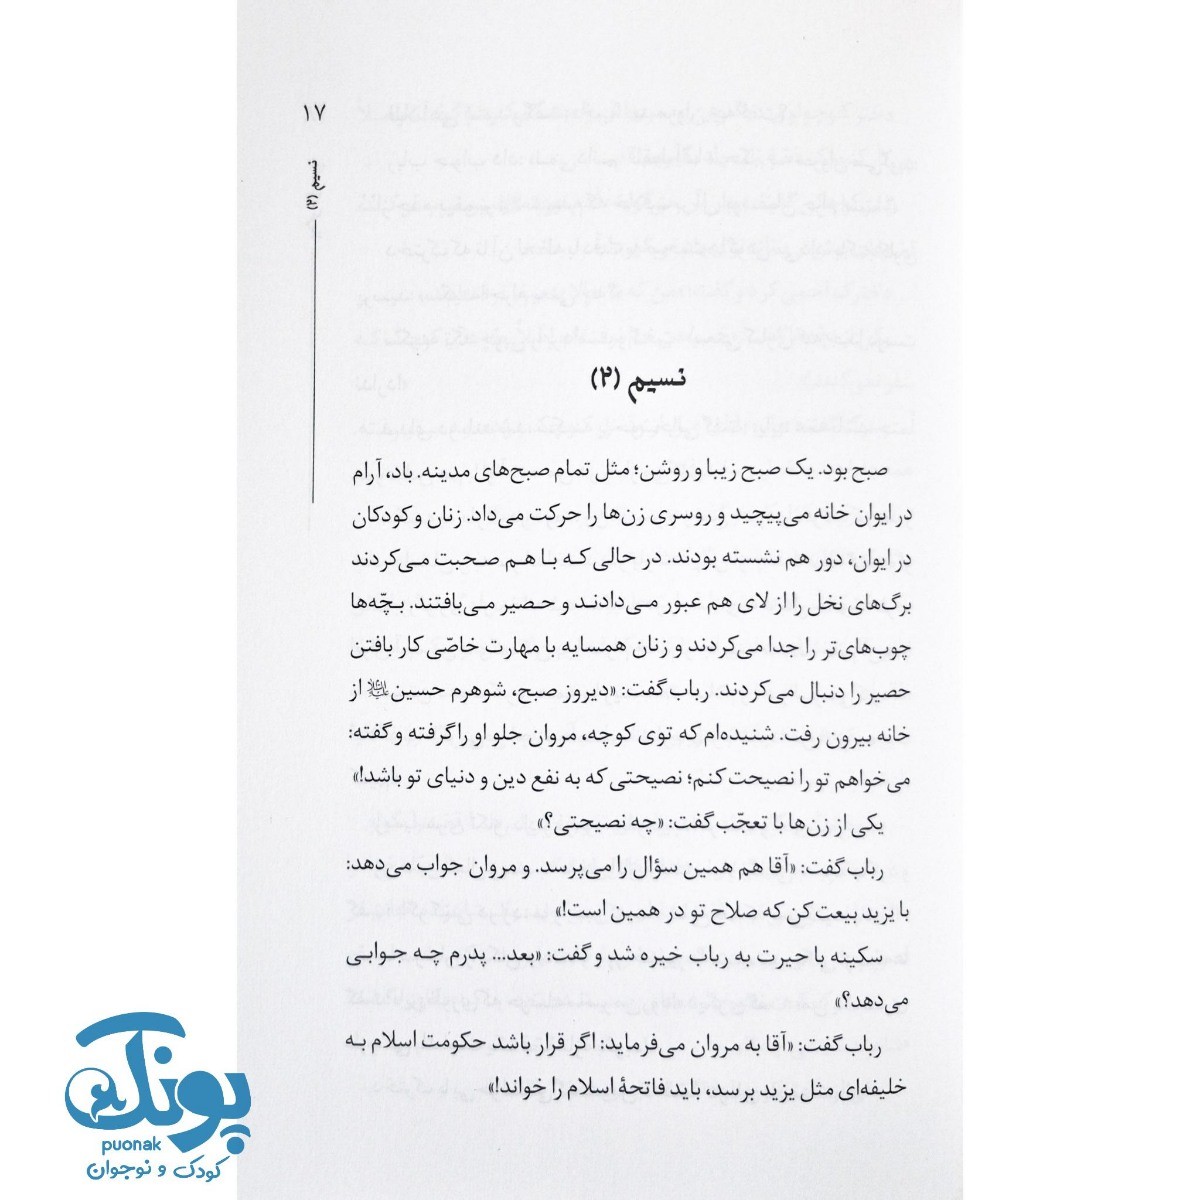 ۱۷
نسیم (۲)
نسیم (۲)
صبح بود. یک صبح زیبا و روشن؛ مثل تمام صبح‌های مدینه. باد، آرام
در ایوان خانه می‌پیچید و روسری زن‌ها را حرکت می‌داد. زنان و کودکان
در ایوان، دور هم نشسته بودند. در حالی که با هم صحبت می‌کردند
برگ‌های نخل را از لای هم عبور می‌دادند و حصیر می‌بافتند. بچّه‌ها
چوب‌های‌تر را جدا می‌کردند و زنان همسایه با مهارت خاصّی کار بافتن
حصیر را دنبال می‌کردند. رباب گفت: «دیروز صبح، شوهرم حسین علیه‌السلام از
خانه بیرون رفت. شنیده‌ام که توی کوچه، مروان جلو او را گرفته و گفته:
می‌خواهم تو را نصیحت کنم؛ نصیحتی که به نفع دین و دنیای تو باشد!»
یکی از زن‌ها با تعجّب گفت: «چه نصیحتی؟»
رباب گفت: «آقا هم همین سؤال را می‌پرسد. و مروان جواب می‌دهد:
با یزید بیعت کن که صلاح تو در همین است!»
سکینه با حیرت به رباب خیره شد و گفت: «بعد... پدرم چه جوابی
می‌دهد؟»
رباب گفت: «آقا به مروان می‌فرماید: اگر قرار باشد حکومت اسلام به
خلیفه‌ای مثل یزید برسد، باید فاتحۀ اسلام را خواند!»
پونک
puonak
کودک و نوجوان